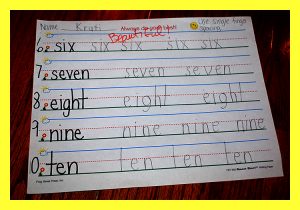 Name Krati Always do your best! Use single finger spacing
Beautiful!
6. six six six six six
7. seven seven seven
8. eight eight eight
9. nine nine nine nine
0. ten ten ten ten